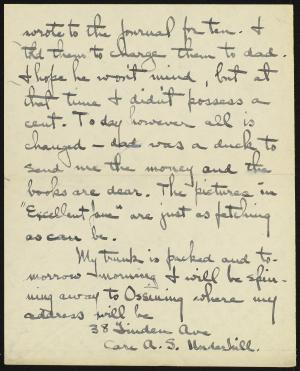 wrote to the Journal for ten. I
told them to charge them to dad.
I hope he won't mind, but at
that time I didn't possess a
cent. Today however all is
changed – dad was a duck to
send me the money and the
books are dear. The pictures in
"Excellent Jane" are just as fetching
as can be.
My trunk is packed and to-
morrow morning I will be spin-
ning away to Ossining where my
address will be
38 Linden Ave
Care A. S. Underhill.